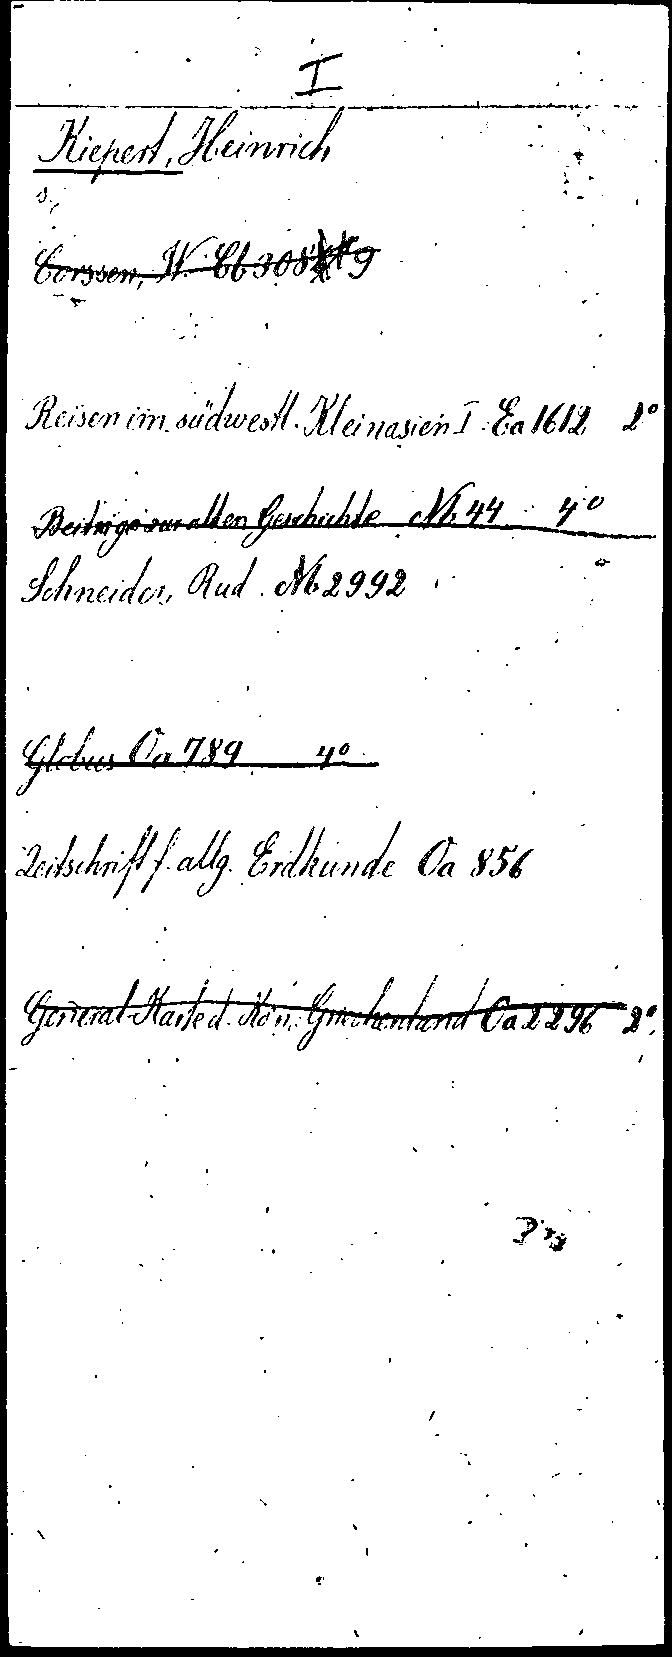 I
Kiepert, Heinrich
s.
Corssen, W. Cb 308 9
Reisen im südwestl. Kleinasien I. Ea 1612 2°
Beiträge zur alten Geschichte Nb 44 4°
Schneider, Rud. Nb 2992
Globus Oa 789 4°
Zeitschrift f. allg. Erdkunde Oa 856
General-Karte d. Kön. Griechenland Oa 2296 2°.